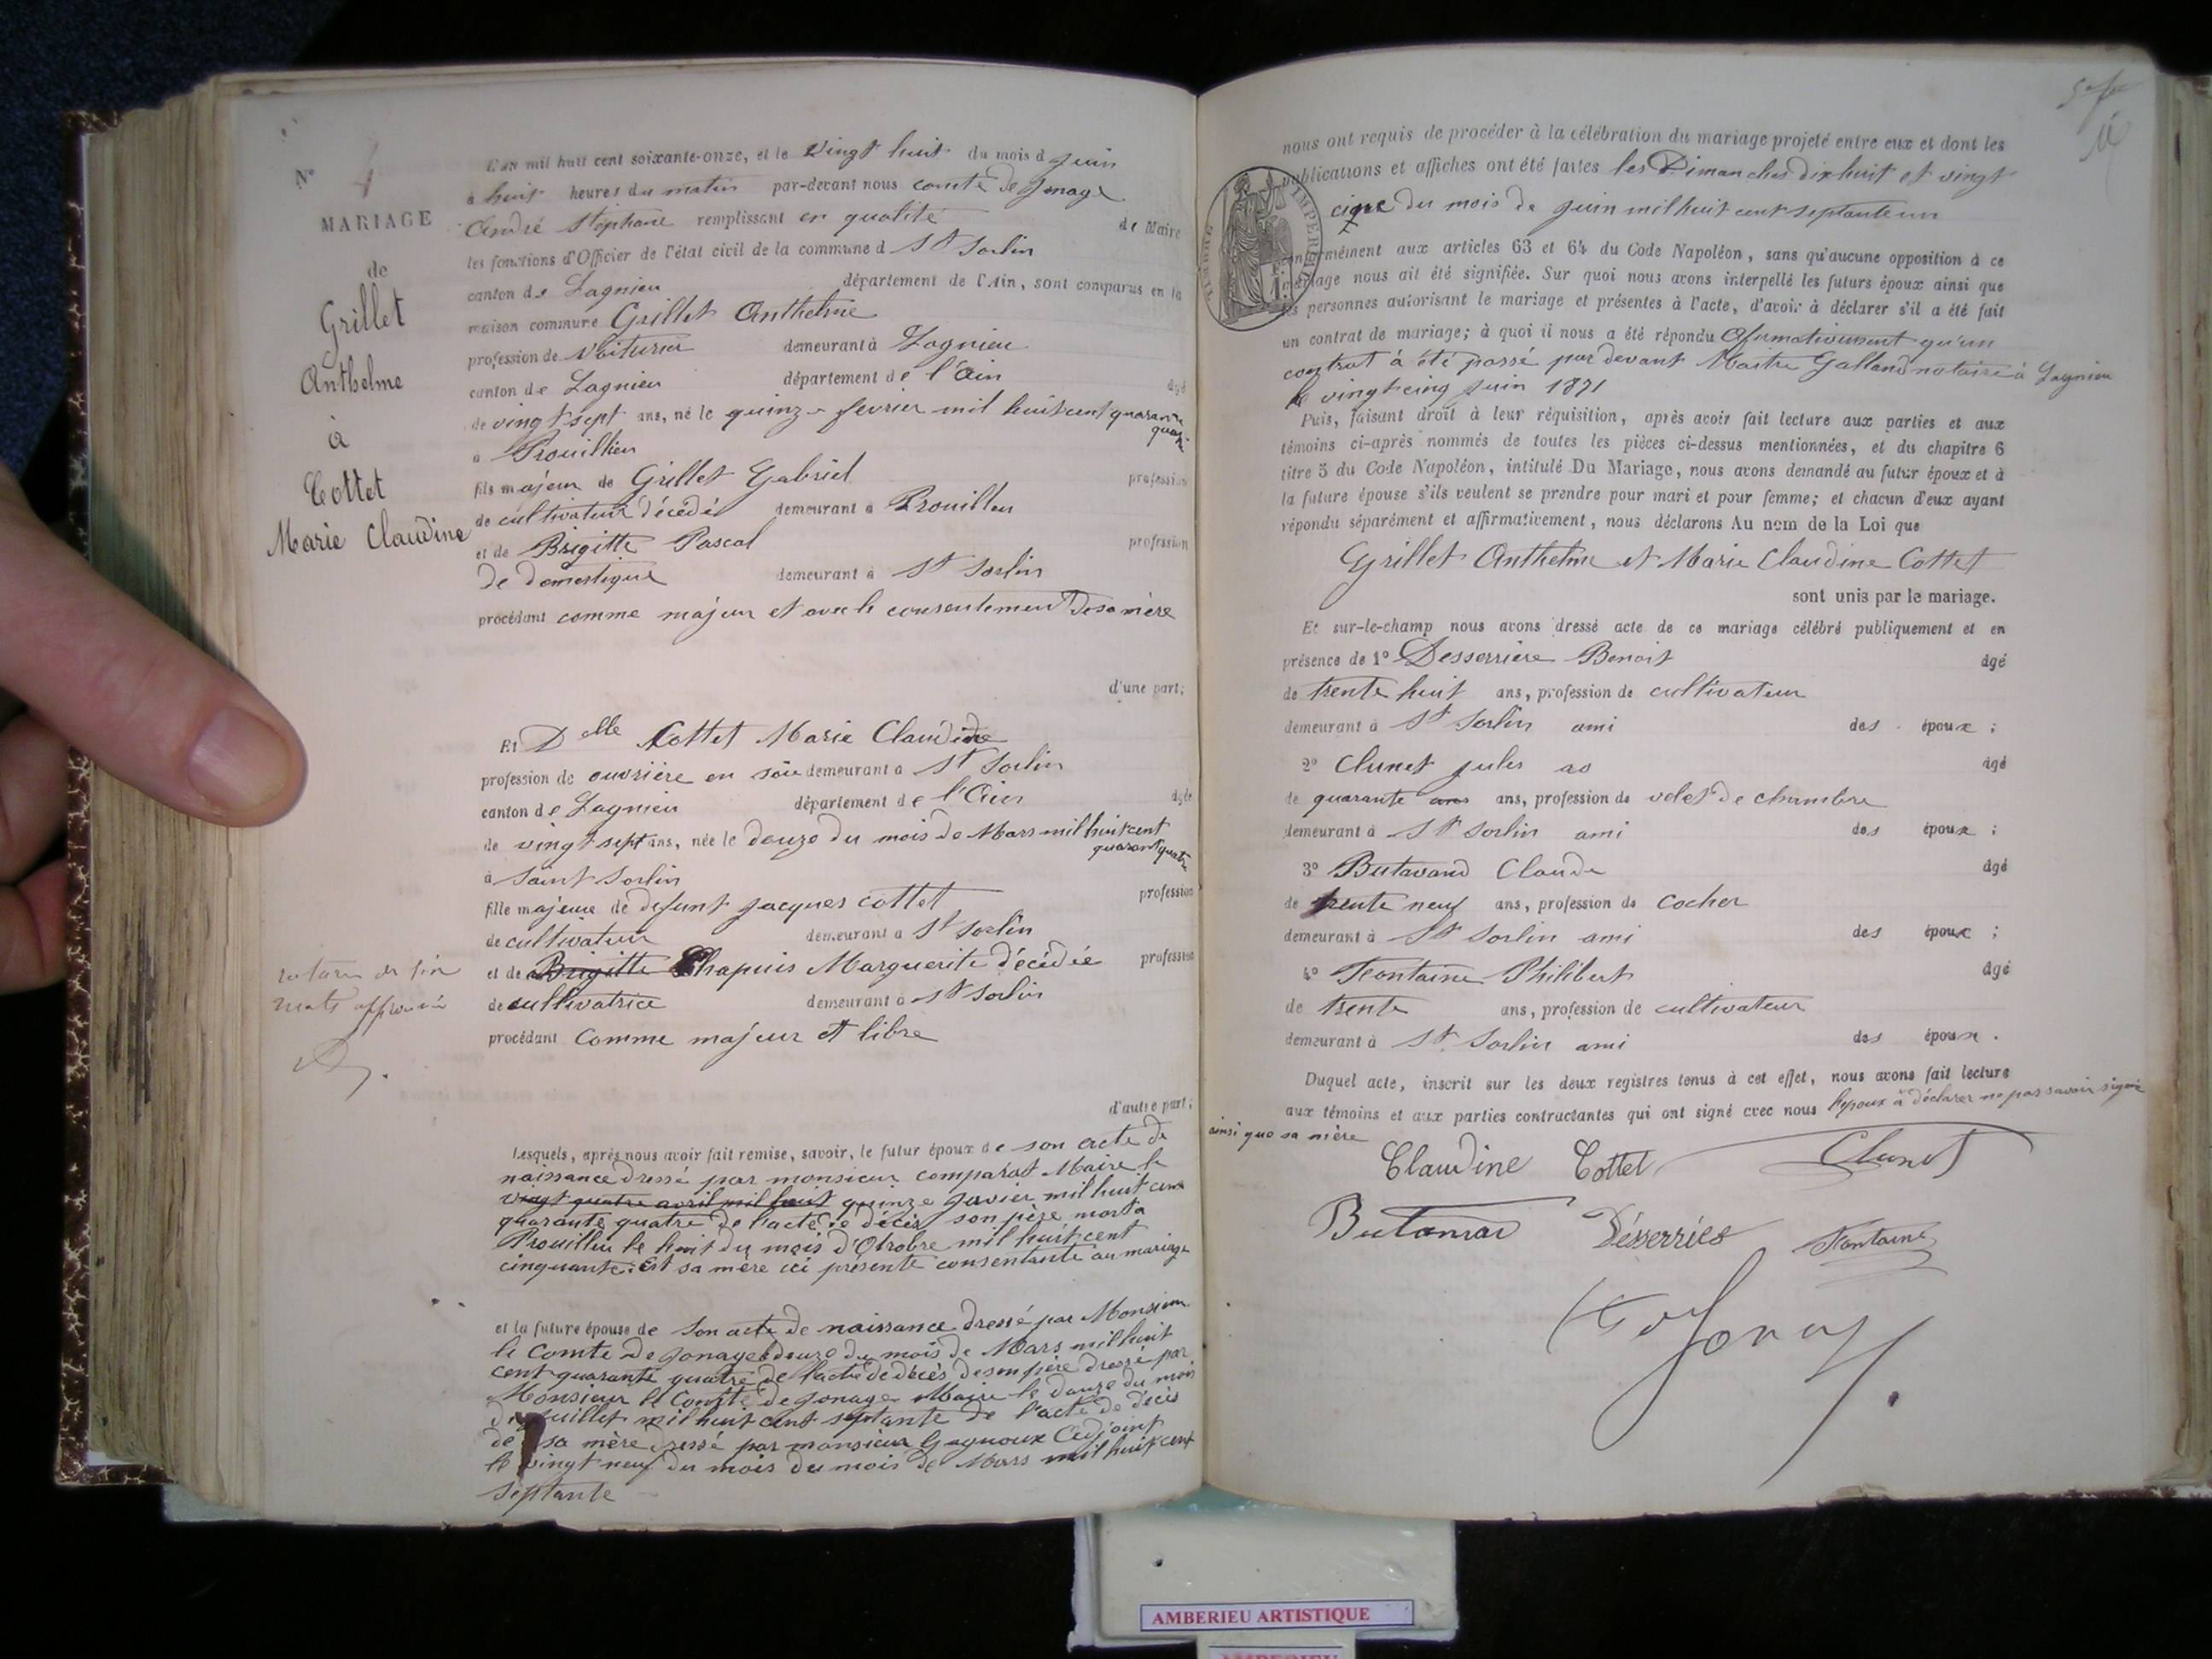 N° 4
MARIAGE
de
Grillet
Anthelme
à
Cottet
Marie Claudine
L'an mil huit cent soixante-onze, et le vingt huit du mois d juin
à huit heures du matin par-devant nous comte de Jonage
André Stéphane remplissant en qualité de Maire
les fonctions d'Officier de l'état civil de la commune d St Sorlin
canton de Lagnieu département de l'Ain, sont comparus en la
maison commune Grillet Anthelme
profession de Voiturier demeurant à Lagnieu
canton de Lagnieu département de l'Ain âgé
de vingt sept ans, né le quinze fevrier mil huit cent quarante
quatre
à Prouillieu
fils majeur de Grillet Gabriel profession
de cultivateur décédé demeurant à Prouillieu
et de Brigitte Pascal profession
De domestique demeurant à St Sorlin
procédant comme majeur et avec le consentement de sa mère
d'une part;
Et Delle Cottet Marie Claudine
profession de ouvrière en soie demeurant à St Sorlin
canton de Lagnieu département de l'Ain âgée
de vingt sept ans, née le douze du mois de Mars mil huit cent
quarante quatre
à Saint Sorlin
fille majeure de defunt Jacques Cottet profession
de cultivateur demeurant à St Sorlin
et de Brigitte Chapuis Marguerite décédée profession
de cultivatrice demeurant à St Sorlin
procédant comme majeur et libre
mots approuvé
d'autre part;
Lesquels, après nous avoir fait remise, savoir, le futur époux de son acte de
naissance dressé par monsieur comparat Maire le
vingt quatre avril mil huit quinze Janvier mil huit cent
quarante quatre de l'acte de décès son père mort a
Prouillieu le huit du mois d'Otrobre mil huit cent
cinquante. Et sa mère ici présente consentante au mariage
et la future épouse de son acte de naissance dressé par Monsieur
le Comte de Jonage douze du mois de Mars mil huit
cent quarante quatre de l'acte de décès de son père dressé par
Monsieur le Comte de Jonage Maire le douze du mois
de juillet mil huit cent septante de l'acte de décès
de sa mère dressé par monsieur Gagnoux Adjoint
le vingt neuf du mois du mois de Mars mil huit cent
septante
nous ont requis de procéder à la célébration du mariage projeté entre eux et dont les
publications et affiches ont été faites les Dimanches dix huit et vingt
cinq du mois de juin mil huit cent septante un
conformément aux articles 63 et 64 du Code Napoléon, sans qu'aucune opposition à ce
mariage nous ait été signifiée. Sur quoi nous avons interpellé les futurs époux ainsi que
les personnes autorisant le mariage et présentes à l'acte, d'avoir à déclarer s'il a été fait
un contrat de mariage; à quoi il nous a été répondu Afirmativement qu'un
contrat à été passé par devant Maitre Galland notaire à Lagnieu
le vingt cinq juin 1871
Puis, faisant droit à leur réquisition, après avoir fait lecture aux parties et aux
témoins ci-après nommés de toutes les pièces ci-dessus mentionnées, et du chapitre 6
titre 5 du Code Napoléon, intitulé Du Mariage, nous avons demandé au futur époux et à
la future épouse s'ils veulent se prendre pour mari et pour femme; et chacun d'eux ayant
répondu séparément et affirmativement, nous déclarons Au nom de la Loi que
Grillet Anthelme et Marie Claudine Cottet
sont unis par le mariage.
Et sur-le-champ nous avons dressé acte de ce mariage célébré publiquement et en
présence de 1° Desserriere Benoit âgé
de trente huit ans, profession de cultivateur
demeurant à St Sorlin ami des époux ;
2° Clunet jules âgé
de quarante ans ans, profession de valet de chambre
demeurant à St Sorlin ami des époux ;
3° Butavand Claude âgé
de trente neuf ans, profession de cocher
demeurant à St Sorlin ami des époux ;
4° Fontaine Philibert âgé
de trente ans, profession de cultivateur
demeurant à St Sorlin ami des époux .
Duquel acte, inscrit sur les deux registres tenus à cet effet, nous avons fait lecture
aux témoins et aux parties contractantes qui ont signé avec nous l'epoux à déclarer ne pas savoir signer
ainsi que sa mère
Claudine Cottet Clunet
Butavand Désserriés Fontaine
AMBERIEU ARTISTIQUE